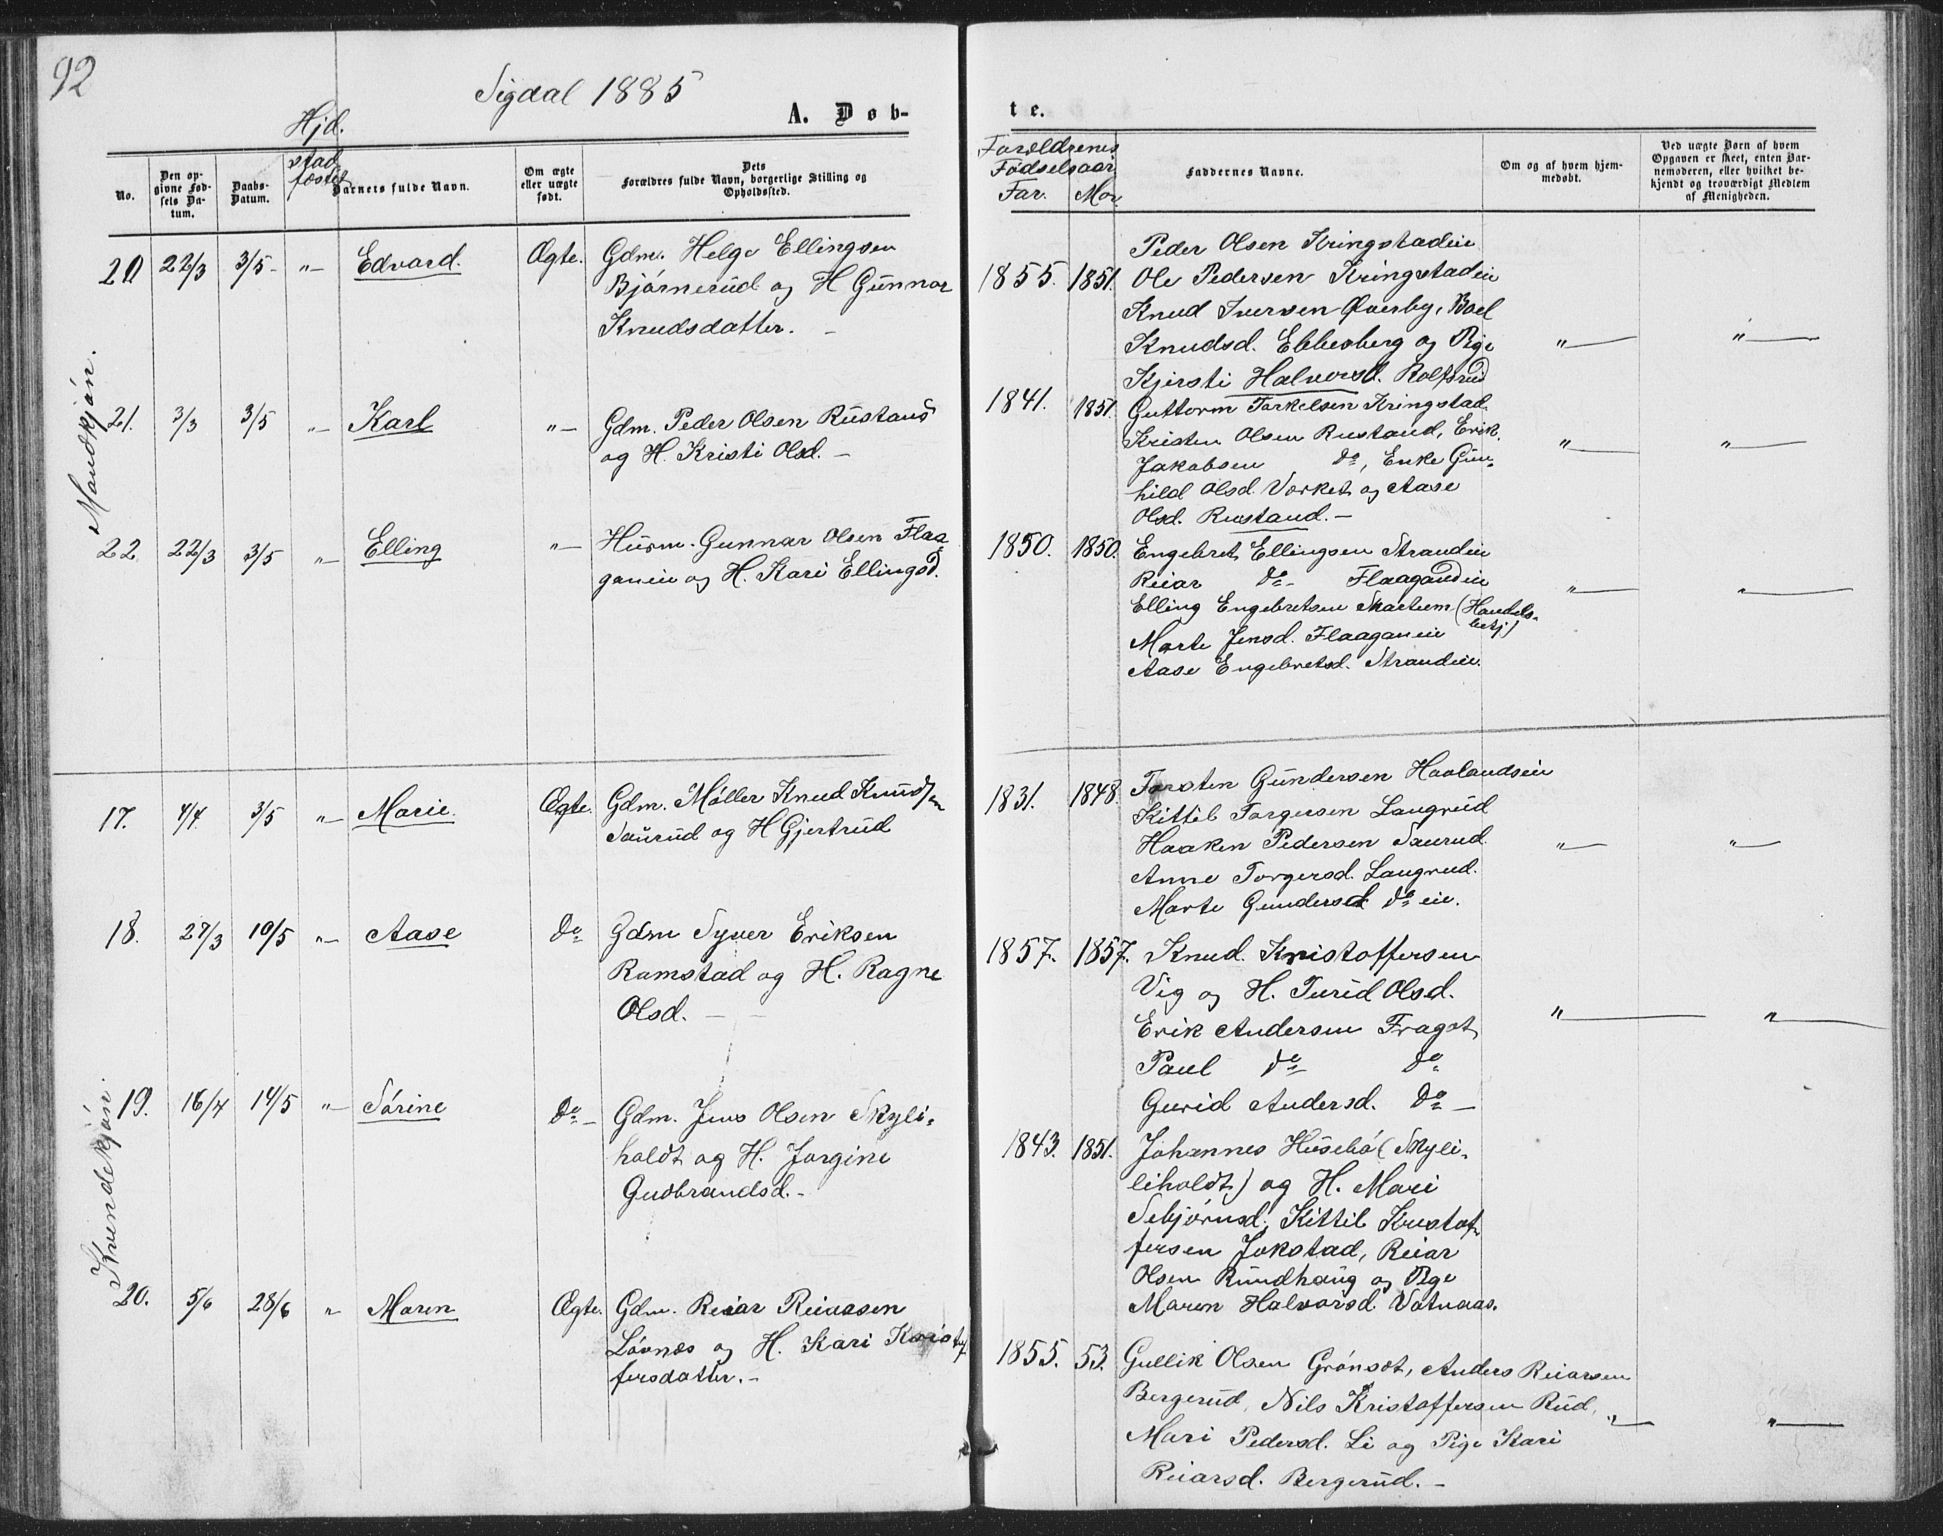 92
Sigdal 1885
A. Døb-
te.
Hjd.
stad
fæstet
No.
Den op-
givne Fød-
sels Da-
tum.
Daabs-
Datum.
Barnets fulde Navn.
Om ægte
eller uægte
født.
Dets
Forældres fulde Navn, borgerlige Stilling og
Opholdssted.
Forældrenes
Födselsaar
Far. Mor.
Faddernes Navne.
Om og af hvem hjem-
medøbt.
Ved uægte Børn af hvem
Opgaven er skeet, enten Bar-
nemoderen, eller hvilket be-
kjendt og troværdigt Medlem
af Menigheden.
Mandskjøn.
20 22/3 3/5 - „ - Edvard. Ægte. Gdm. Helge Ellingsen
Bjørnerud og H Gunnor
Knudsdatter. -
1855. 1851.
Peder Olsen Kringstadeie
Ole Pedersen Kringstadeie
Knud Iversen Øverby, Boel
Knudsd. Ebbesberg og Pige „ - „ -
Kjersti Halvorsd. Rolfsrud
21. 3/3 3/5 „ - Karl „ - Gdm. Peder Olsen Rustand
og H. Kristi Olsd. -
1841. 1851.
Guttorm Torkelsen Kringstad
Kristen Olsen Rustand, Erik
Jakobsen do, Enke Gun- „ - „ -
hild Olsd. Vorket og Aase
Olsd. Rustand. -
22 22/3 3/5 „ - Elling „ - Husm. Gunnar Olsen Flaa-
ganeie og H. Kari Ellingsd.
1850. 1850.
Engebret Ellingsen Strandeie
Reiar do - Flaagandeie „ - „ -
Elling Engebretsen Skartum (Handels-
betj)
Marte Jensd. Flaaganeie
Aase Engebretsd. Strandeie.
Kvindekjøn.
17. 4/4 3/5 „ - Marie. Ægte. Gdm. Møller Knud Knudsen
Saurud og H Gjertrud
1831. 1848.
Torsten Gundersen Haalandseie
Kittil Torgersen Langrud
Haaken Pedersen Saurud. „ - „ -
Anne Torgersd. Langrud.
Marte Gundersd. do eie.
18. 27/3 10/5 „ - Aase do Gdm Syver Eriksen
Ramstad og H. Ragne
Olsd. -
1857. 1857.
Knud Kristoffersen
Vig og H. Turid Olsd.
Erik Andersen Fragot „ - „ -
Paul do do
Guvid Andersd. do -
19. 16/4 14/5 „ - Sørine do - Gdm. Jens Olsen Skyli-
holdt og H. Jorgine
Gudbrandsd. -
1843. 1851.
Johannes Husebø (Skyli-
liholdt) og H. Mari
Sebjørnsd, Kittil Kristof-
fersen Jokstad, Reiar
Olsen Rundhaug og Pige
Maren Halvorsd Vatnaas.
20. 5/6 28/6 „ - Maren Ægte. Gdm. Reiar Reiarsen
Løvnes og H. Kari Kristof-
fersdatter. -
1855. 53.
Gullik Olsen Grønset, Anders Reiarsen
Bergerud, Nils Kristoffersen Rud, „ - „ -
Mari Pedersd. Li og Pige Kari
Reiarsd. Bergerud. -